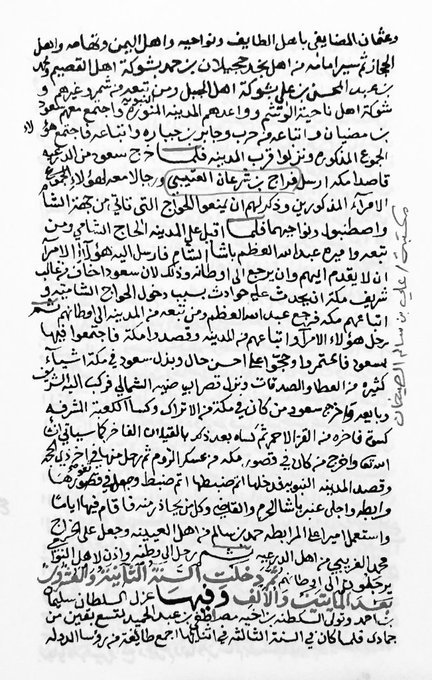 وعثمان المضايفي باهل الطايف ونواحيه واهل اليمن وتهامه واهل
الحجاز ثم سير امامه من اهل نجد حجيلان بن حمد بشوكة اهل القصيم ومحمد
بن عبد المحسن بن علي بشوكة اهل الجبل ومن تبعه من شمر وغيرهم و
شوكة اهل ناحية الوشم وواعدهم المدينه المنوره واجتمع معهم مسعود
بن مضيان واتباعه من حرب وجابر بن جباره واتباعه فاجتمع هؤلا
الجموع المذكوره ونزلوا قرب المدينه فلما خرج سعود من الدرعيه
قاصد امكة ارسل فراج بن شرعان العتيبي ورجالا معه لهؤلاء
الامراء المذكورين وذكر لهم ان يمنعوا الحواج التي تاتي من جهة الشا
واصطنبول ونواحيهما فلما اقبل علي المدينه الحاج الشامي ومن
تبعه واميره عبد الله العظم باشا الشام فارسل اليه هؤلاء الامرآ
ان لا يقدم اليهم وان يرجع الى اوطانه وذلك لان سعود اخاف من غالب
شريف مكة ان يحدث عليه حوادث بسبب دخول الحواج الشاميه و
اتباعهم مكه فرجع عبد الله العظم ومن تبعه من المدينه الى اوطانهم ثم
رحل هؤلاء الامراء واتباعهم من المدينه وقصدوا مكة فاجتمعوا فيها
بسعود فاعتمروا وحجوا على احسن حال وبذل سعود في مكة اشيآء
كثيره من العطا والصدقات ونزل قصر البياضيه الشمالي فركب اليه الشريف
وبايعه فاخرج سعود من كان في مكة من الاتراك وكسا الكعبة المشرفه
كسوة فاخره من القز الاحمر ثم كساه بعد ذلك بالقيلان الفاخر كما سياتي ان
شا الله واخرج من كان في قصور مكه من عسكر الروم ثم رحل منها في اخر ذي الحجه
وقصد المدينه النبويه فدخلها ثم ضبطها اتم ضبط وجعل في قصورها
مرابطه واجلى عنها باشا الحرم والقاضي وكل من يحاذر منه فاقام فيها اياما
واستعمل اميرا علي المرابطه حمد بن سالم من اهل العيينه وجعل علي الخراج
محمد الغريبي من اهل الدرعيه ثم رحل الى وطنه واذن لاهل النواحي
يرجعون الى اوطانهم ثم دخلت السنة الثانية والعشرون
بعد المايتين والألف وفيها عزل السلطان سليم
بن احمد وتولى السلطنه بن اخيه مصطفى بن عبد الحميد لتسع بقين من
جمادى فلما كان في السنة الثالثه في اثنائها اجمع طائفة من رؤسا الدوله
مكتبة / علي بن سالم الصيخان